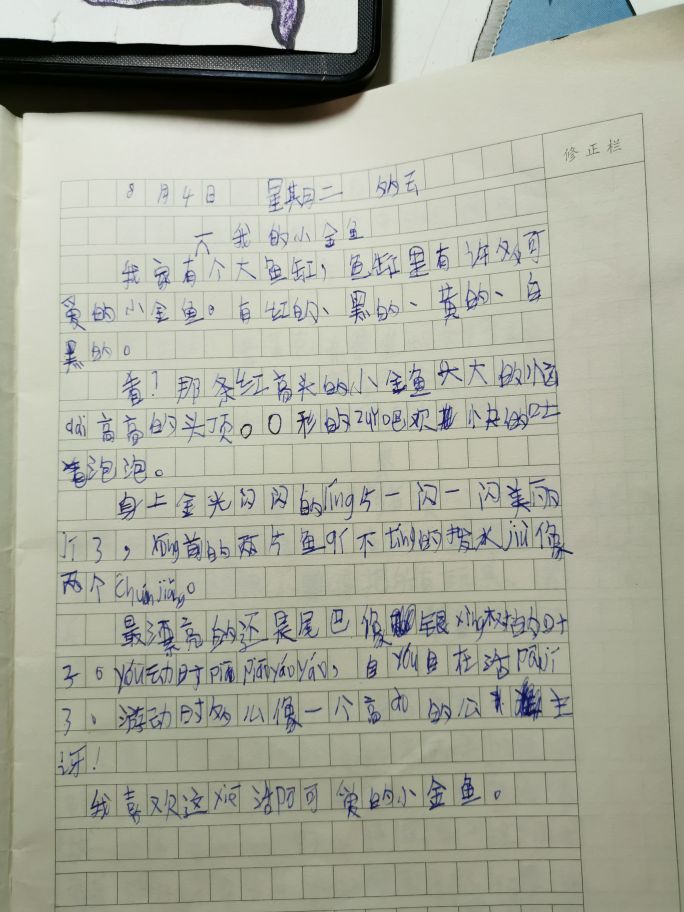 修正栏
8月4日 星期二 多云
我的小金鱼
我家有个大鱼缸，鱼缸里有许多可
爱的小金鱼。有红的、黑的、黄的、白
黑的。
看！那条红高头的小金鱼大大的
dai高高的头顶。O形的zuǐ吧欢快的吐
着泡泡。
身上金光闪闪的líng片一闪一闪美丽
jí了，xiōng前的两片鱼qí不tíng的拨水jiù像
两个chuánjiǎng。
最漂亮的还是尾巴像银xìng树的叶
子。yóu动时piāo piāo yáo yáo，自yóu自在活pōjí
了。游动时多么像一个高 的公主
呀！
我喜欢这xiē活泼可爱的小金鱼。